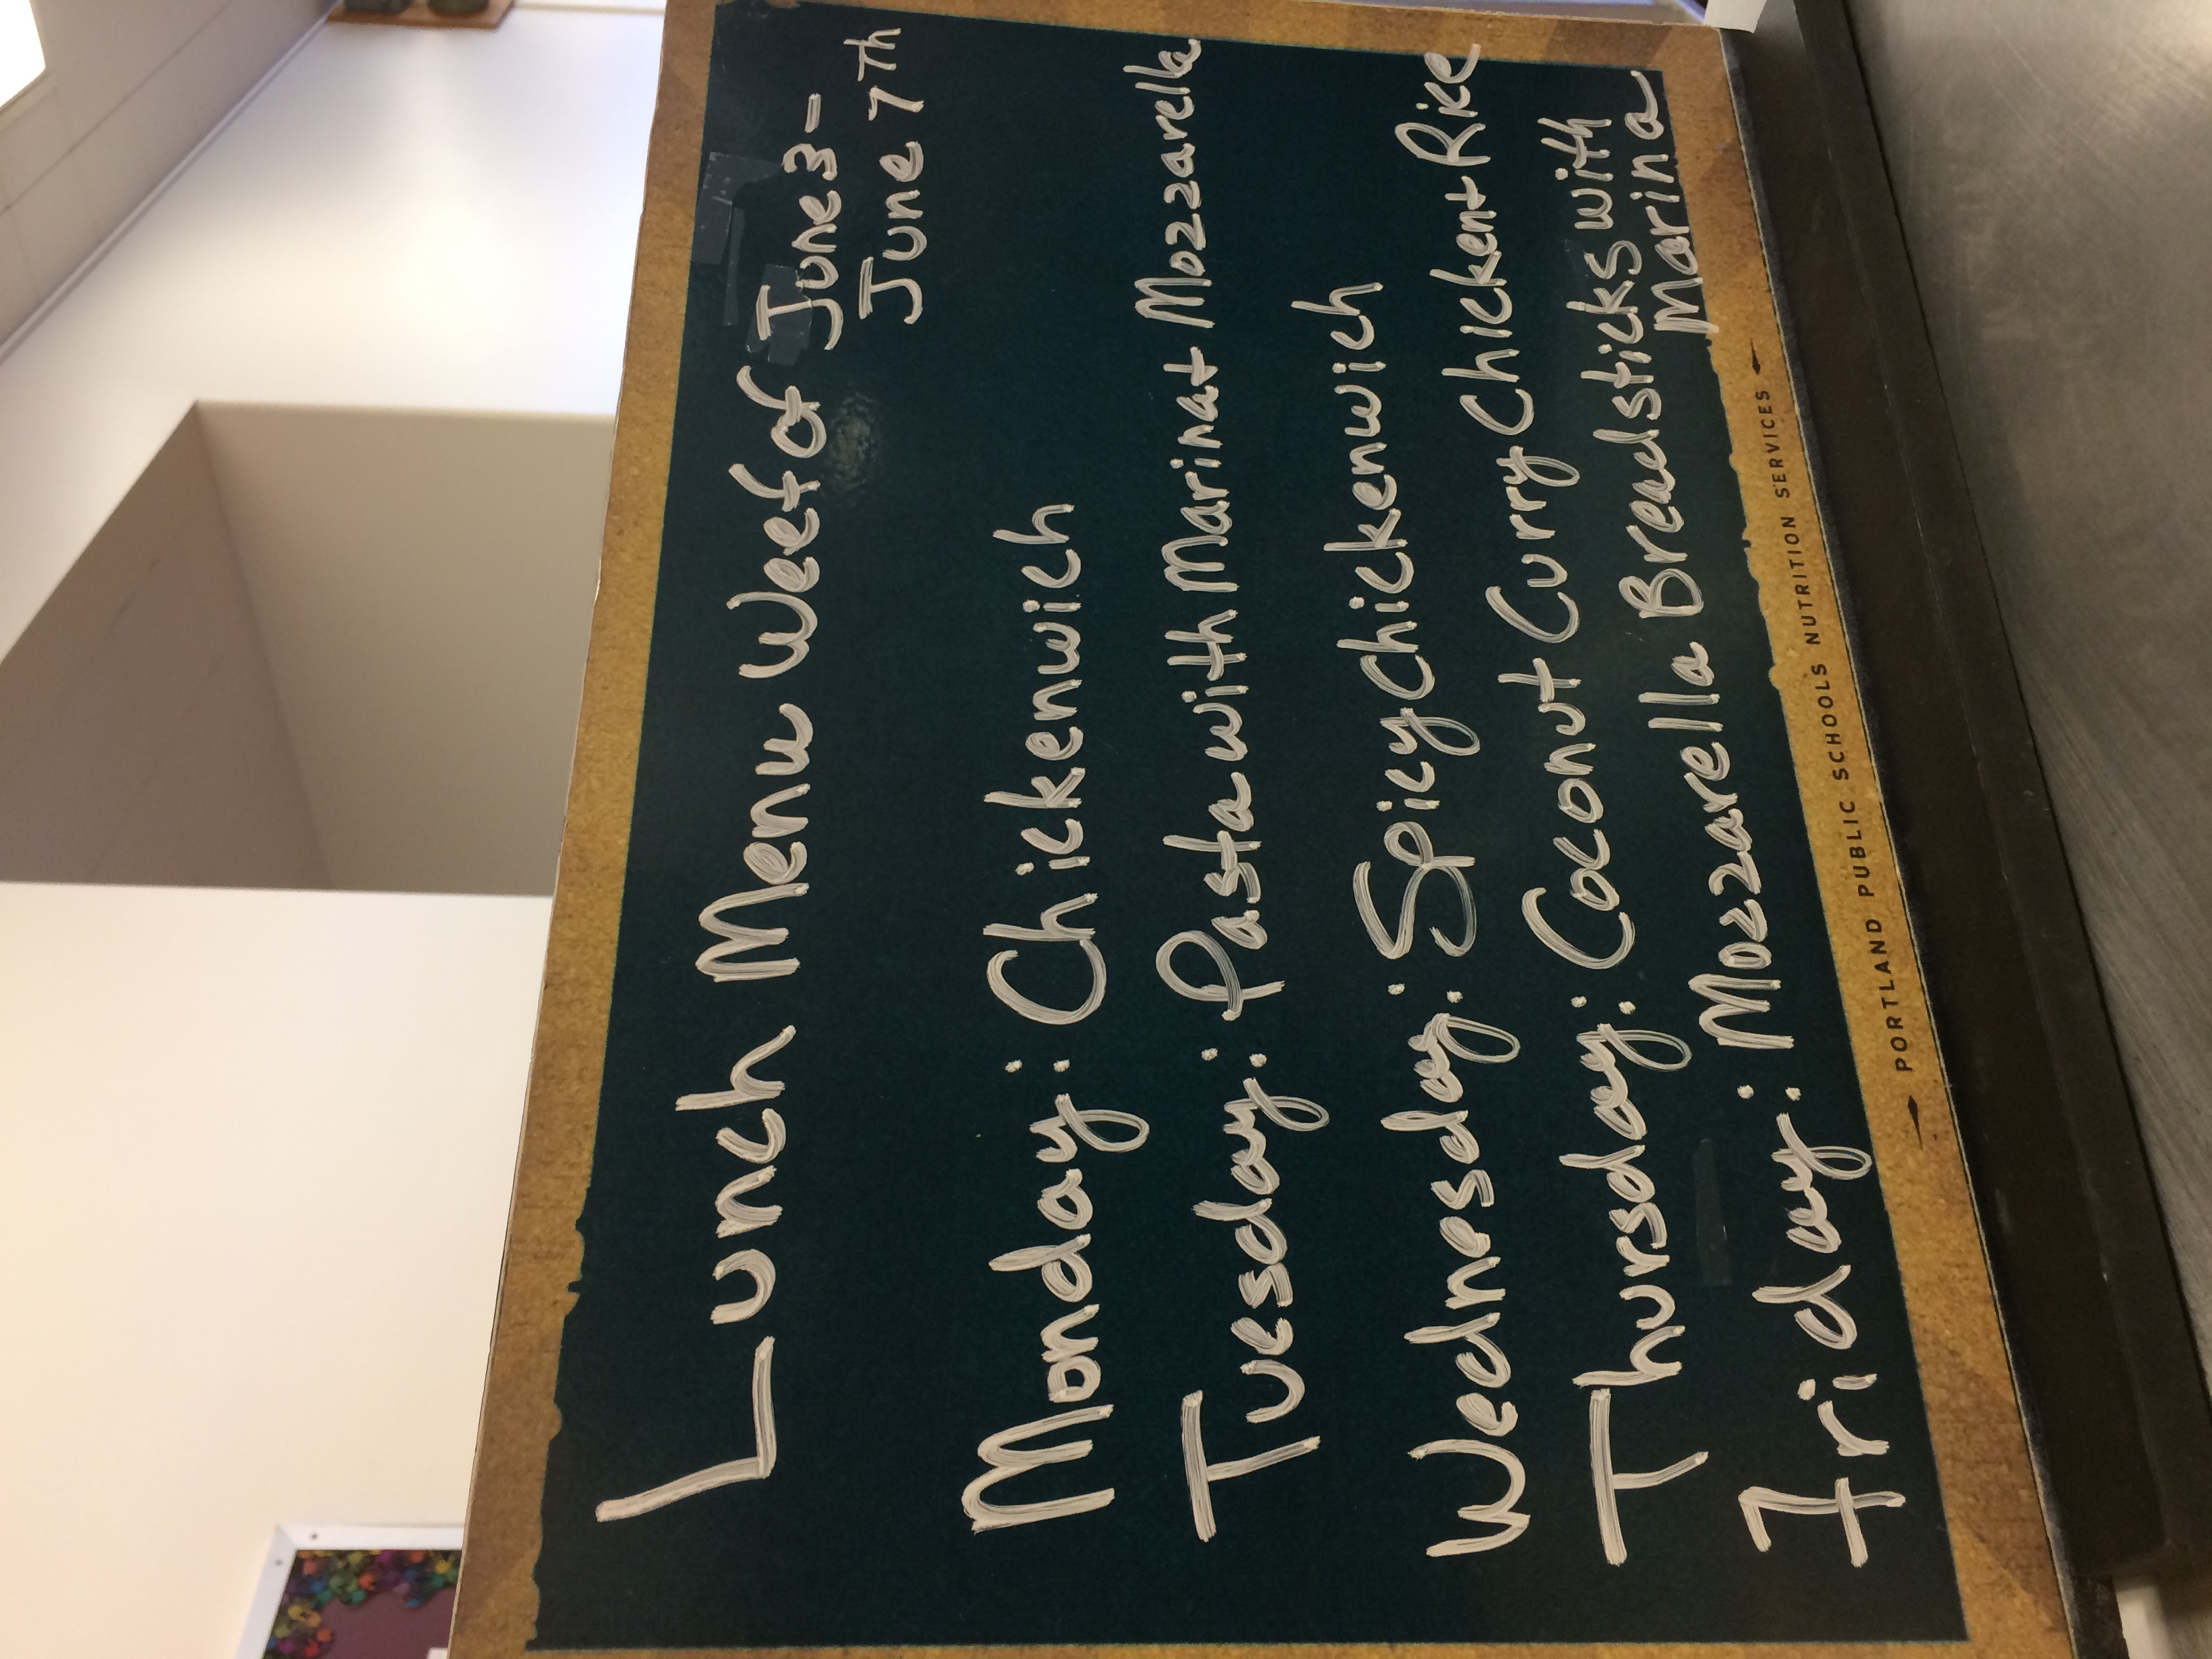 Lunch Menu Week of June 3-
June 7th
Monday: Chickenwich
Tuesday: Pasta with Marina + Mozzarella
Wednesday: Spicy chickenwich
Thursday: Coconut Curry Chicken + Rice
Friday: Mozzarella Breadsticks with
Marina
PORTLAND PUBLIC SCHOOLS NUTRITION SERVICES